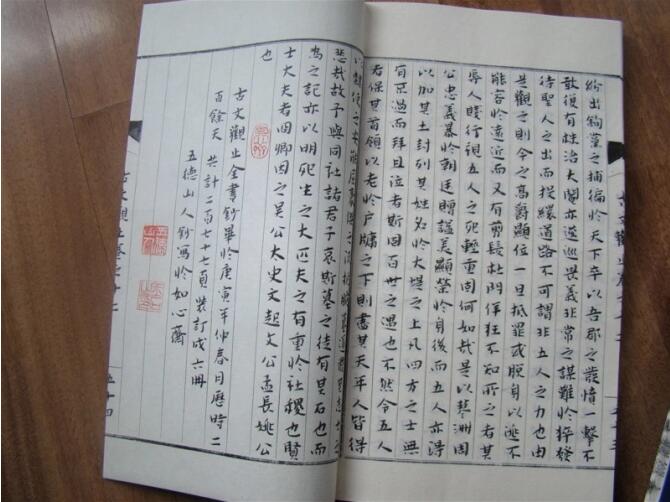 紛出鈎黨之捕徧於天下卒以吾郡之發憤一擊不
敢復有株治大閹亦逡巡畏義非常之謀難於猝發
待聖人之出而投繯道路不可謂非五人之力也由
是觀之則今之高爵顯位一旦抵罪或脫身以逃不
能容於遠近而又有剪髮杜門佯狂不知所之者其
辱人賤行視五人之死輕重固何如哉是以蓼洲周
公忠義暴於朝廷贈諡美顯榮於身後而五人亦得
以加其土封列其姓名於大堤之上凡四方之士無
有不過而拜且泣者斯固百世之遇也不然令五人
者保其首領以老於戶牖之下則盡其天年人皆得
以隸使之安能屈豪傑之流扼腕墓道發其志士之
悲哉故予與同社諸君子哀斯墓之徒有其石也而
為之記亦以明死生之大匹夫之有重於社稷也賢
士大夫者冏卿因之吳公太史文起文公孟長姚公
也
古文觀止全書鈔畢於庚寅年仲春月歷時二
百餘天 共計二百七十七頁裝訂成六冊
五德山人鈔寫於如心齋
古文觀止卷之十二 五十四